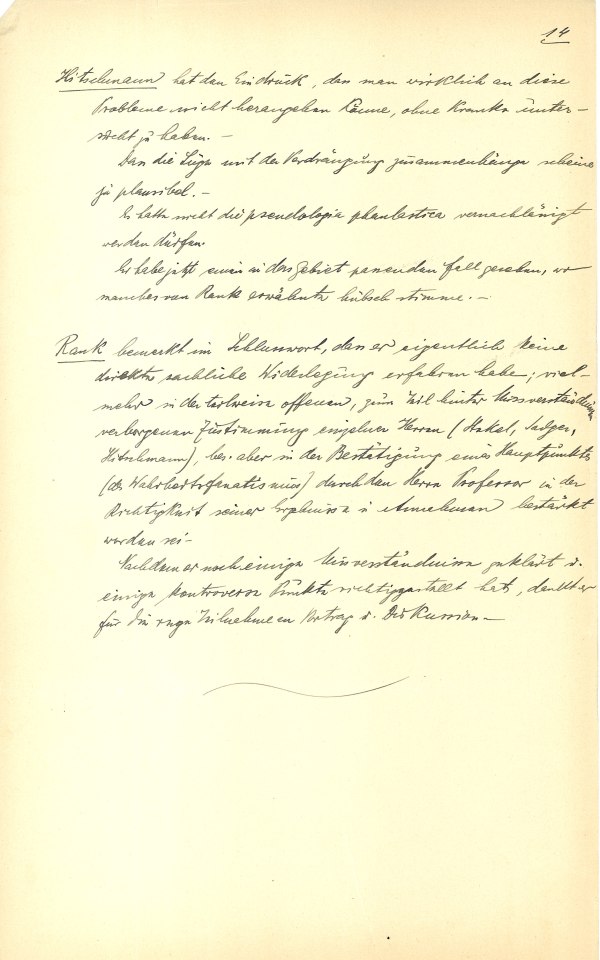 14
Hitschmann hat den Eindruck, dass man wirklich an diese
Probleme nicht herangehen könne, ohne Kranke unter-
sucht zu haben. –
Dass die Lüge mit der Verdrängung zusammenhänge scheine
ja plausibel. –
Es hätte nicht die pseudologia phantastica vernachlässigt
werden dürfen
Er habe jetzt einen in das Gebiet passenden Fall gesehen, wo
manches von Rank erwähnte hübsch stimme. –
Rank bemerkt im Schlusswort, dass er eigentlich keine
direkte sachliche Widerlegung erfahren habe; viel-
mehr in der teilweise offenen, zum Teil hinter Missverständnissen
verborgenen Zustimmung einzelner Herren (Stekel, Sadger,
Hitschmann), bes. aber in der Bestätigung eines Hauptpunktes
(des Wahrheitsfanatismus) durch den Herrn Professor in der
Richtigkeit seiner Ergebnisse u Annahmen bestärkt
worden sei –
Nachdem er noch einige Missverständnisse geklärt u.
einige kontroverse Punkte richtiggestellt hat, dankt er
für die rege Teilnahme an Vortrag u. Diskussion –